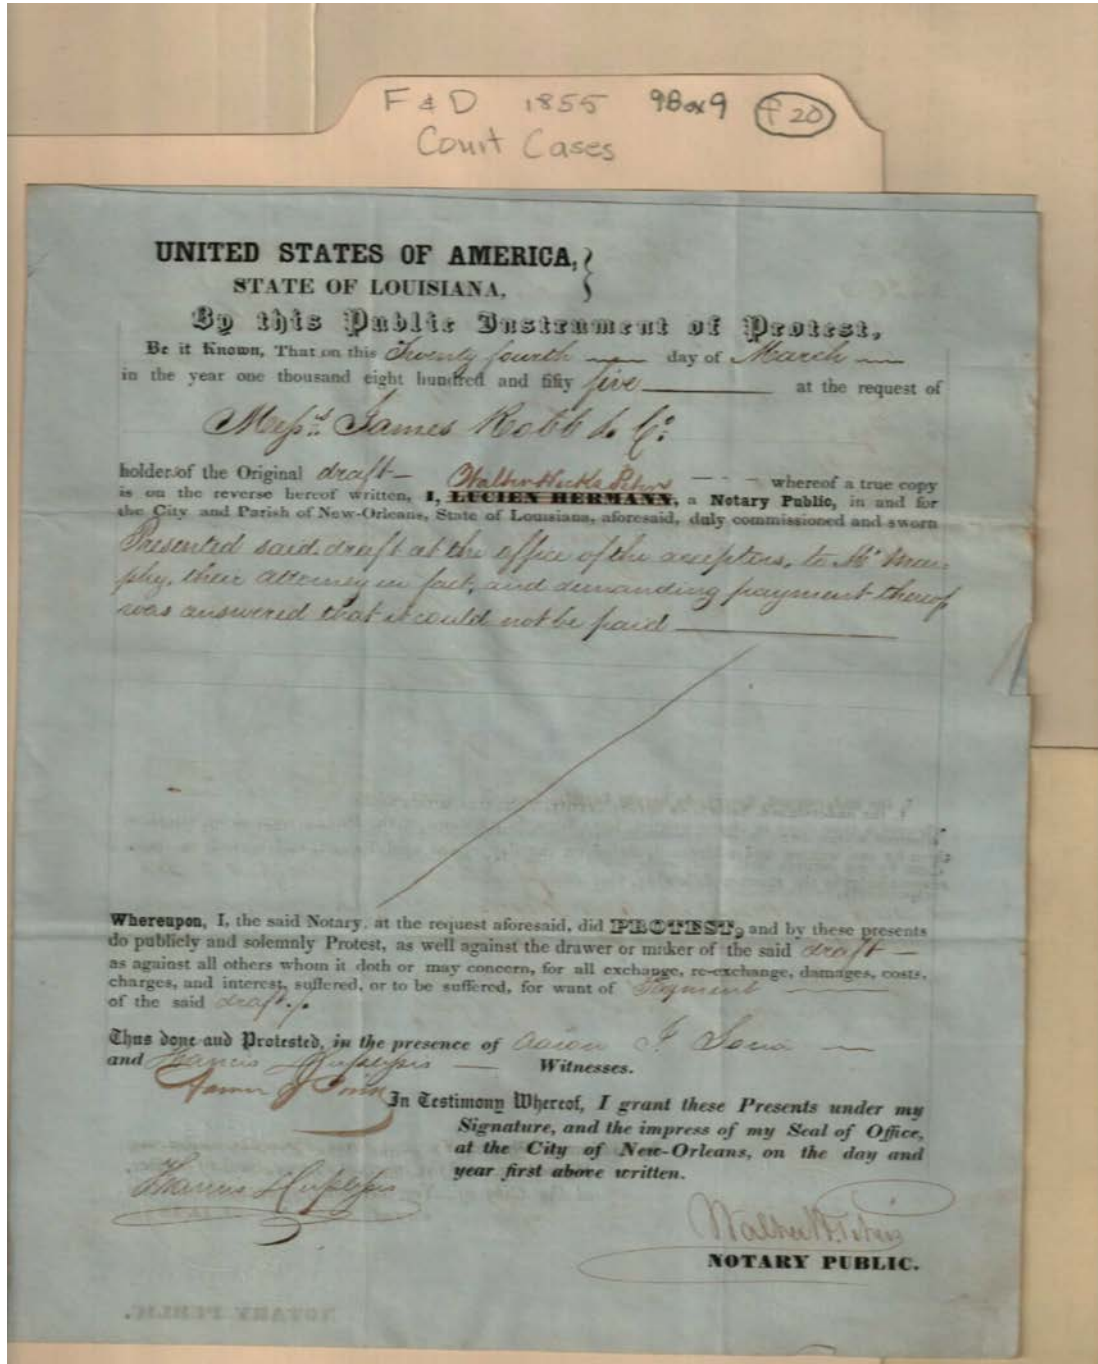 F & D 1855 9Box9 f 20
Court Cases
UNITED STATES OF AMERICA,
STATE OF LOUISIANA.
By this Public Instrument of Protest,
Be it Known, That on this Twenty fourth day of March
in the year one thousand eight hundred and fifty five at the request of
Messrs. James Robb & Co.
holder of the Original draft — Walter Hicks Peters — whereof a true copy
is on the reverse hereof written, I, LUCIEN HERMANN, a Notary Public, in and for
the City and Parish of New-Orleans, State of Louisiana, aforesaid, duly commissioned and sworn
Presented said draft at the office of the acceptors, to Mr
phy, their attorney in fact, and demanding payment thereof
was answered that it could not be paid
Whereupon, I, the said Notary, at the request aforesaid, did PROTEST, and by these presents
do publicly and solemnly Protest, as well against the drawer or maker of the said draft —
as against all others whom it doth or may concern, for all exchange, re-exchange, damages, costs,
charges, and interest, suffered, or to be suffered, for want of Payment
of the said draft.
Thus done and Protested, in the presence of Aaron
and Francis Witnesses.
In Testimony Whereof, I grant these Presents under my
Signature, and the impress of my Seal of Office,
at the City of New-Orleans, on the day and
year first above written.
Francis
Walter H. Peters
NOTARY PUBLIC.